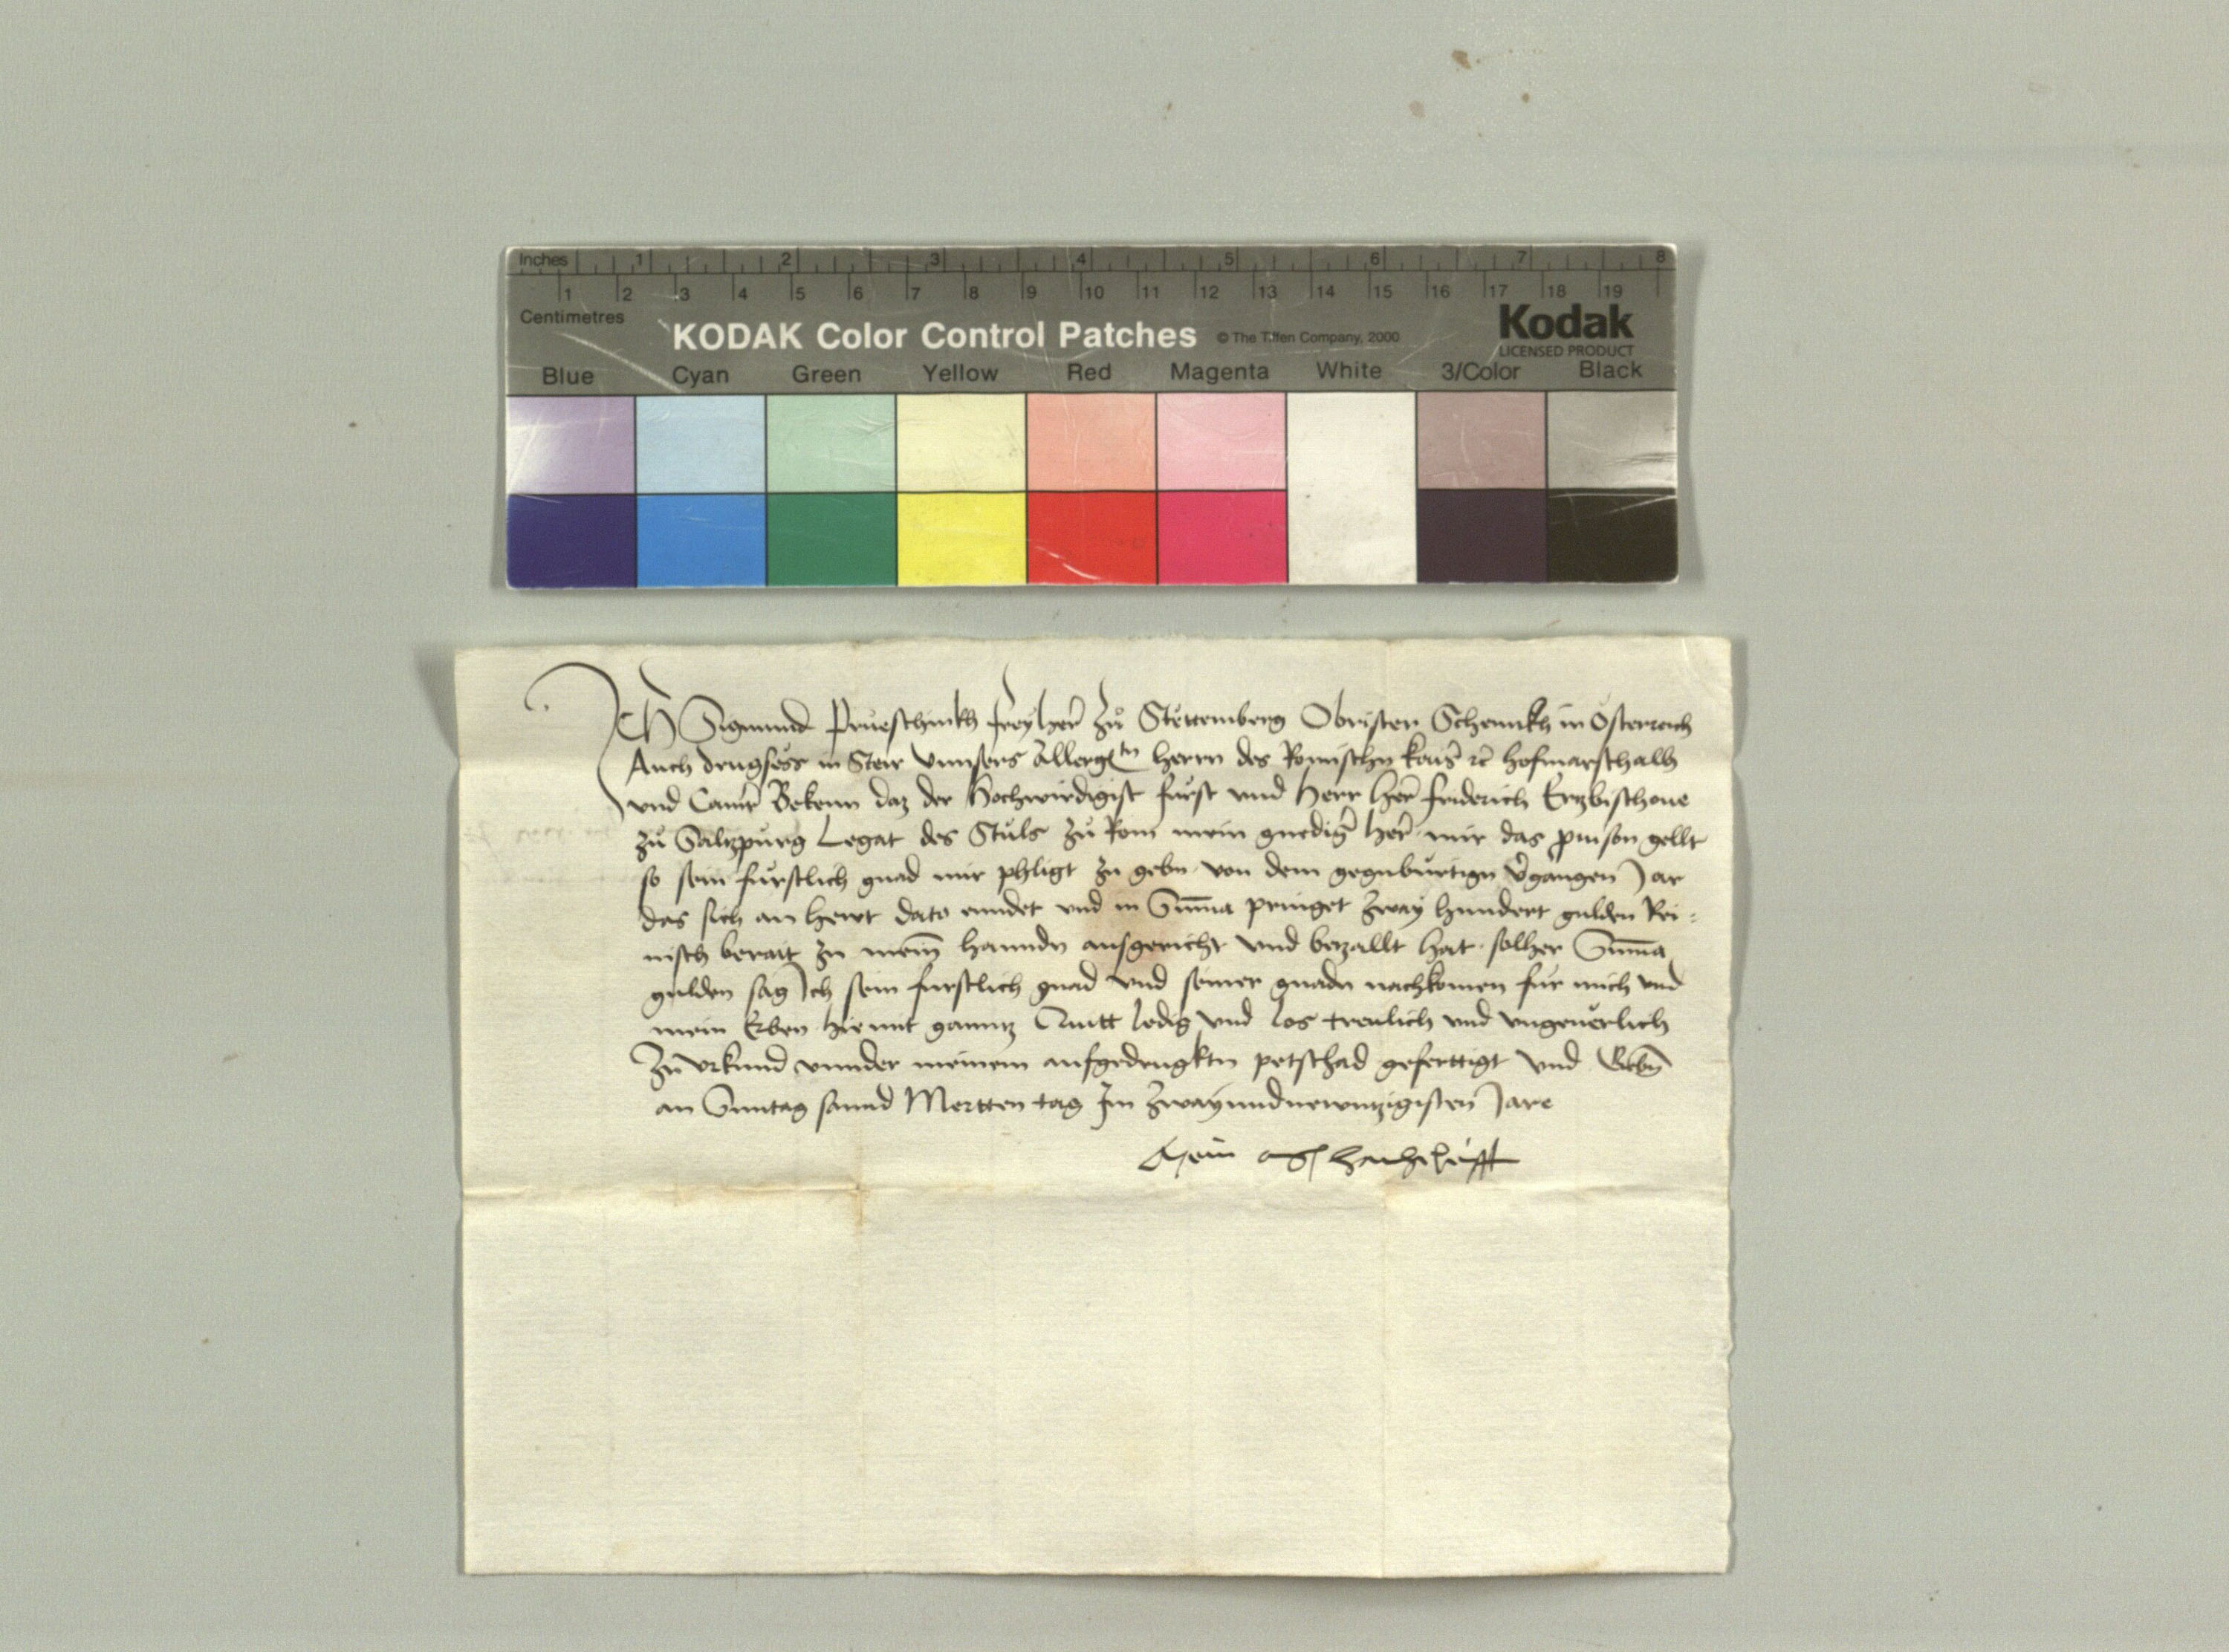 Inches 1 2 3 4 5 6 7 8
1 2 3 4 5 6 7 8 9 10 11 12 13 14 15 16 17 18 19
Centimetres
KODAK Color Control Patches © The Tiffen Company, 2000 Kodak
LICENSED PRODUCT
Blue Cyan Green Yellow Red Magenta White 3/Color Black
Ich Sigmund Prueschinkh freyher zů Stettemberg Obrister Schennkh in Österreich
Auch drugsess in Steir vnnsers Allergtn herrn des Romischn kais rc hofmarschalh
vnd Camr Bekenn daz der Hochwirdigist fürst vnd herr her friderich Ertzbischoue
zů Saltzpůrg Legat des Stůls zů Rom mein gnedig her mir das prouison gellt
so sein fürstlich gnad mir phligt zu gebn von dem gegnbürtign vergangen Jar
das sich an hewt dato enndet vnd in Summa pringet zway hundert gulden Rei=
nisch berait zu mein hanndn ausgericht vnd betzallt hat solher Summa
gulden sag Ich sein furstlich gnad vnd seiner gnadn nachkomen für mich vnd
mein Erben hiemit ganntz Quitt ledig vnd los treulich vnd vngeuerlich
Zu vrkund vnnder meinem aufgedrugktn petschad geferttigt vnd Gebn
an Sunntag sannd Mertten tag Im zwayundnewntzigisten Jare
Mein hanndschrifft